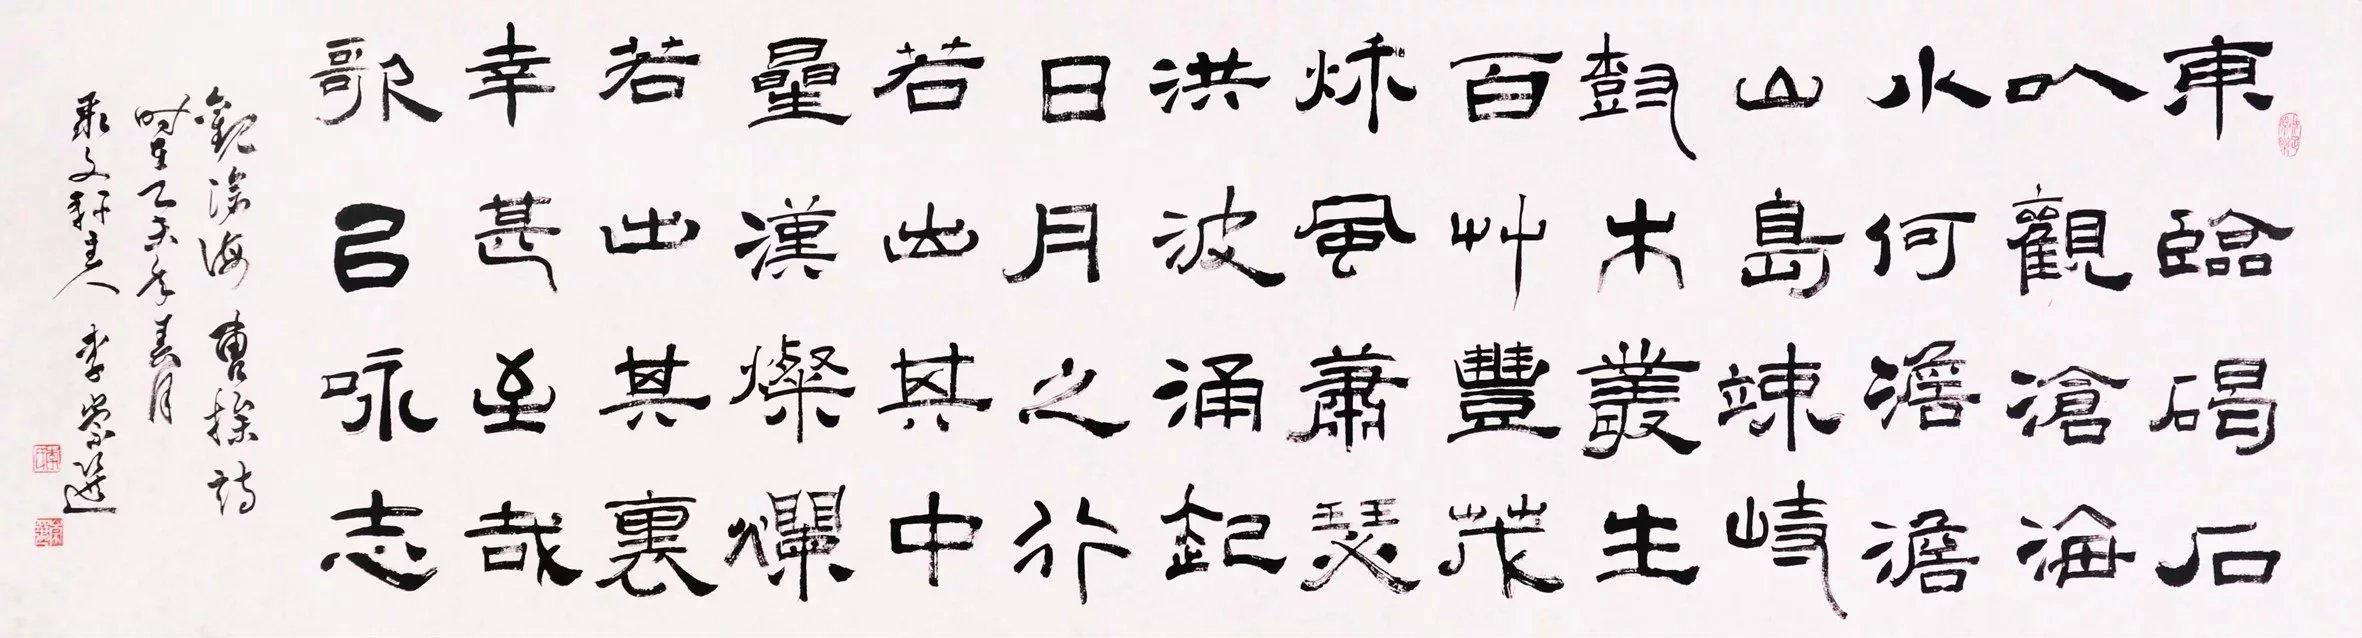 東臨碣石
以觀滄海
水何澹澹
山島竦峙
樹木叢生
百艸豐茂
秌風蕭瑟
洪波涌起
日月之行
若出其中
星漢燦爛
若出其裏
幸甚至哉
歌以咏志
觀滄海 曹操詩
時在乙亥年春月
聚文軒主人 李崇選